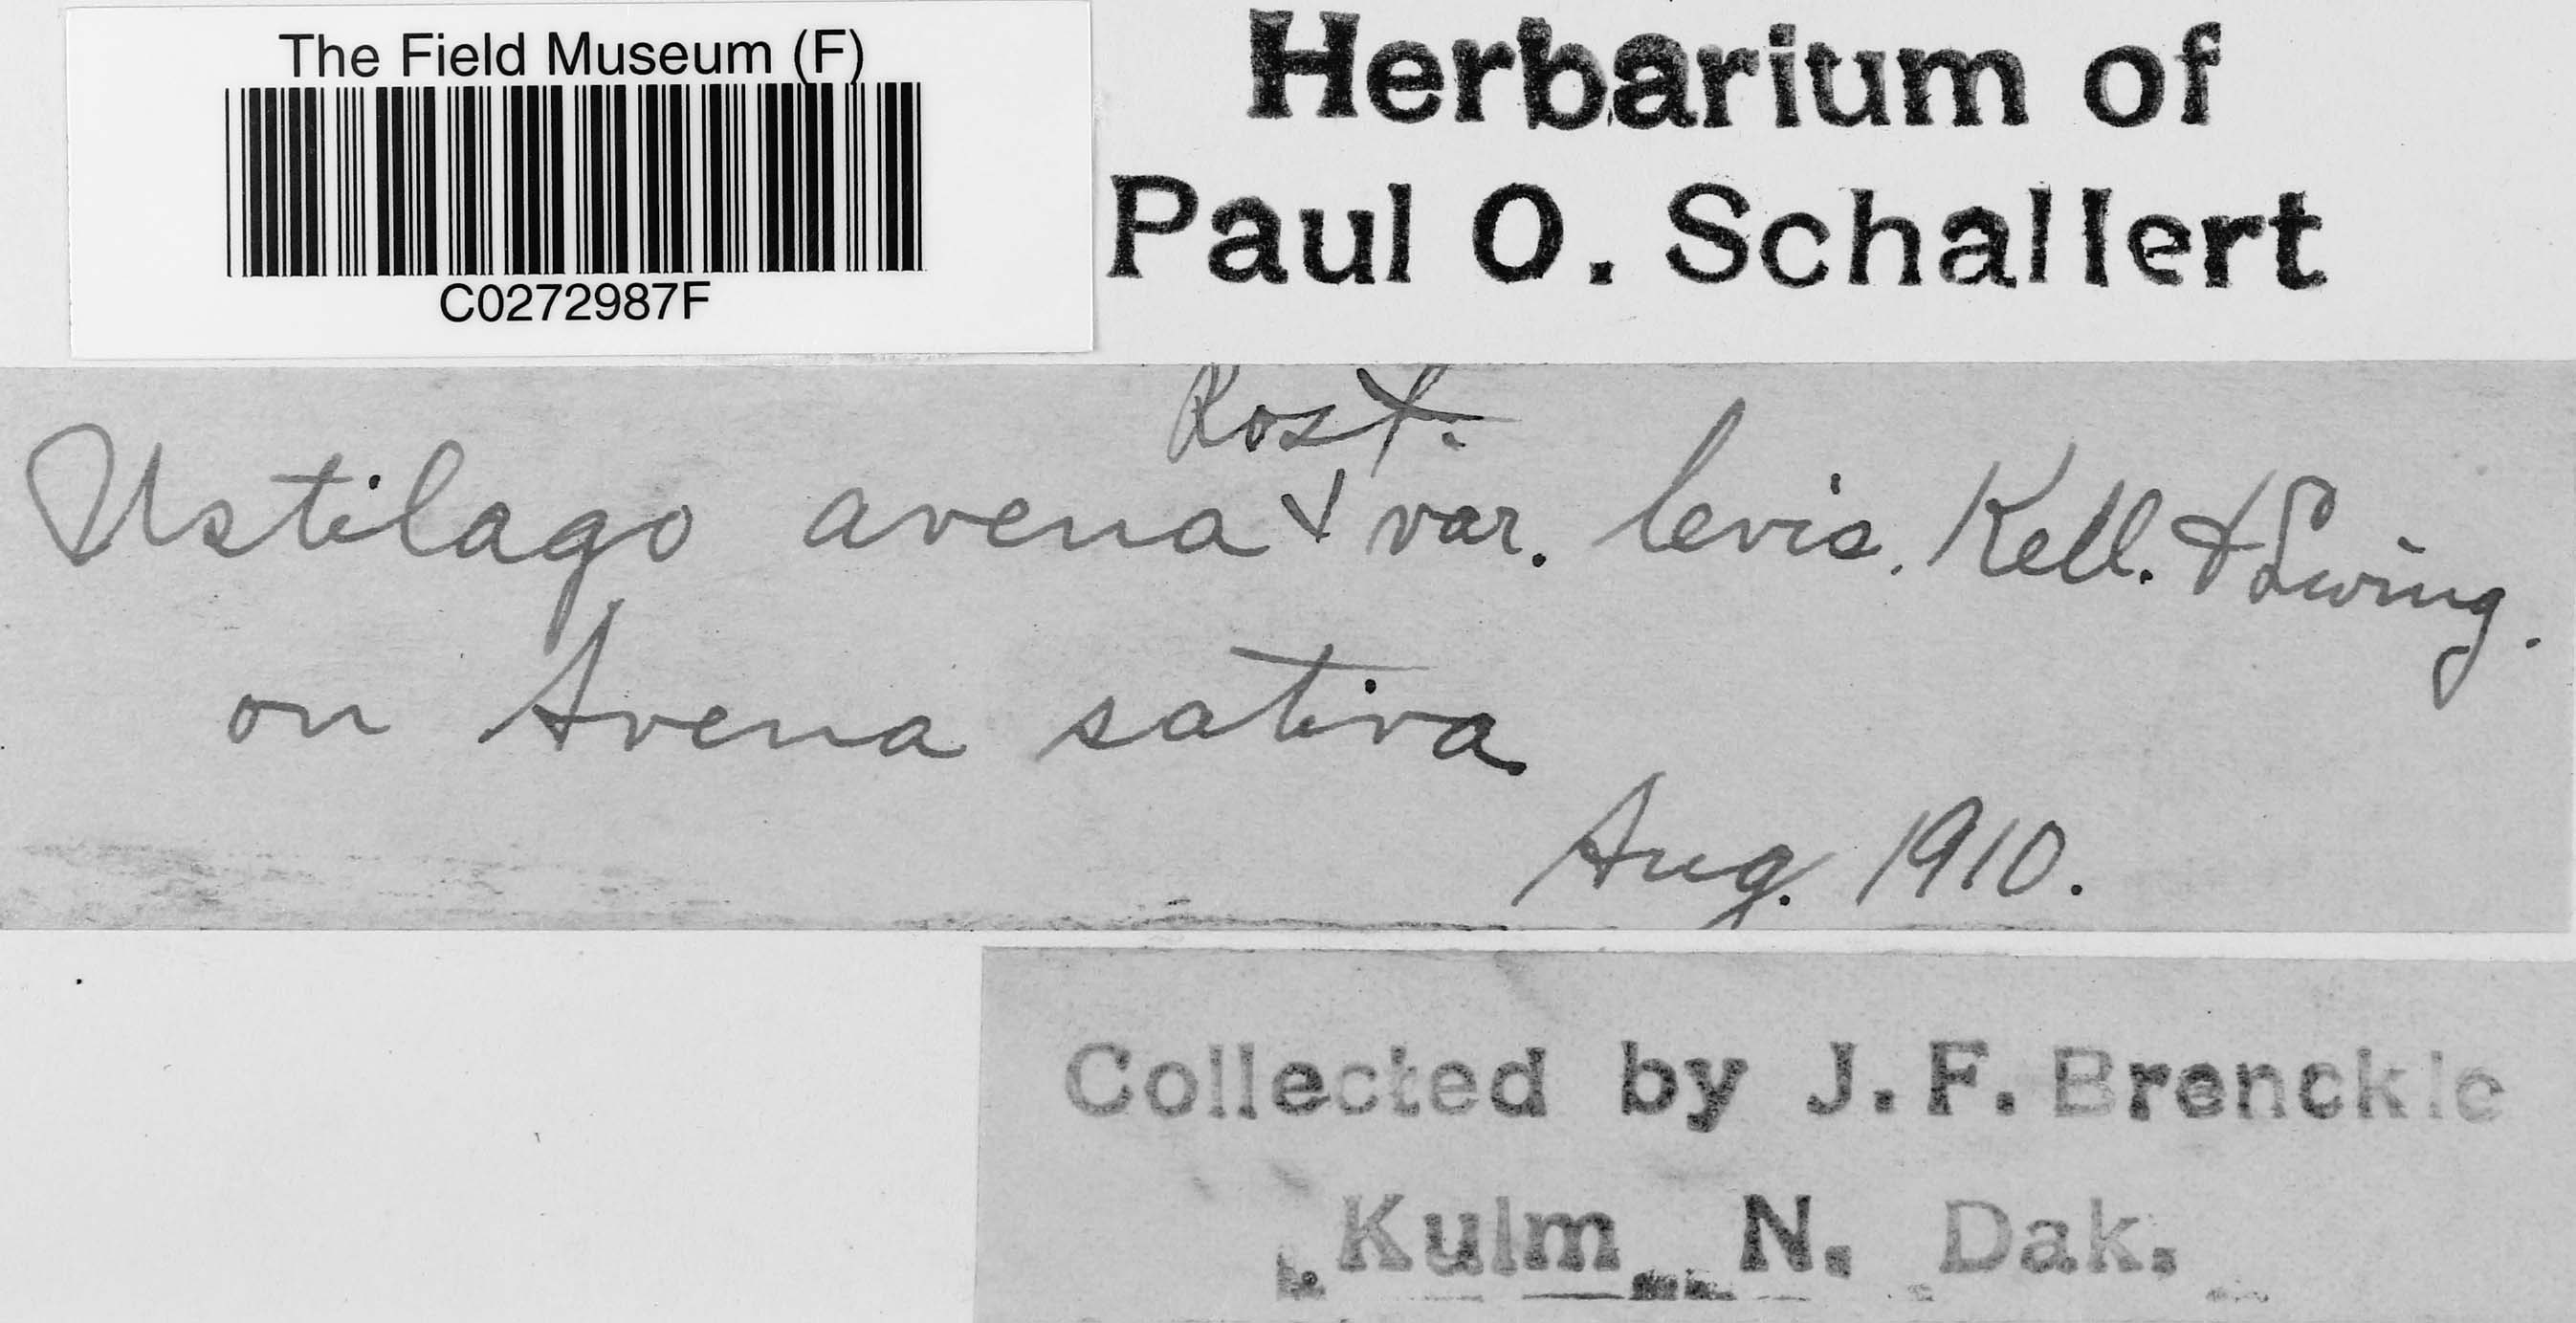 The Field Museum (F)
C0272987F
Herbarium of
Paul O. Schallert
Rost.
Ustilago avena var. levis. Kell. & Swing.
on Avena sativa
Aug. 1910.
Collected by J. F. Brenckle
Kulm N. Dak.